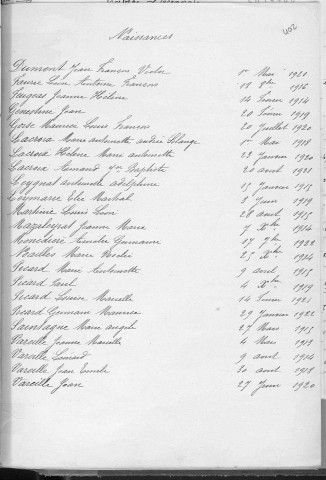 402
Naissances
Dumont Jean François Victor 1er Mai 1920
Faurie Léon Antoine François 18 8bre 1916
Faugeras Jeanne Hélène 14 février 1914
Genestine Jean 20 février 1919
Goise Maurice Louis François 20 Juillet 1920
Lacroix Marie antoinette andrée Solange 1er Mai 1918
Lacroix Hélène Marie antoinette 23 Janvier 1920
Lacroix Armand Jn Baptiste 20 août 1921
Leygnac antoinette delphine 15 Janvier 1915
Leymarie Elie Martial 8 Juin 1919
Martinie Louis Léon 28 août 1915
Mazaleyrat Jeanne Maria 7 Xbre 1914
Monédière Amélie Germaine 17 7bre 1922
Noailles Marie 25 Xbre 1914
Picard Marie Antoinette 9 août 1915
Picard Paul 4 Xbre 1919
Picard Louise Marcelle 14 février 1921
Picard Germain Maurice 29 Janvier 1922
Saintagne Marie angèle 27 Mars 1915
Vareille Jeanne Marcelle 4 Mai 1913
Vareille Léonard 9 août 1914
Vareille Jean Emile 30 août 1918
Vareille Jean 27 Juin 1920